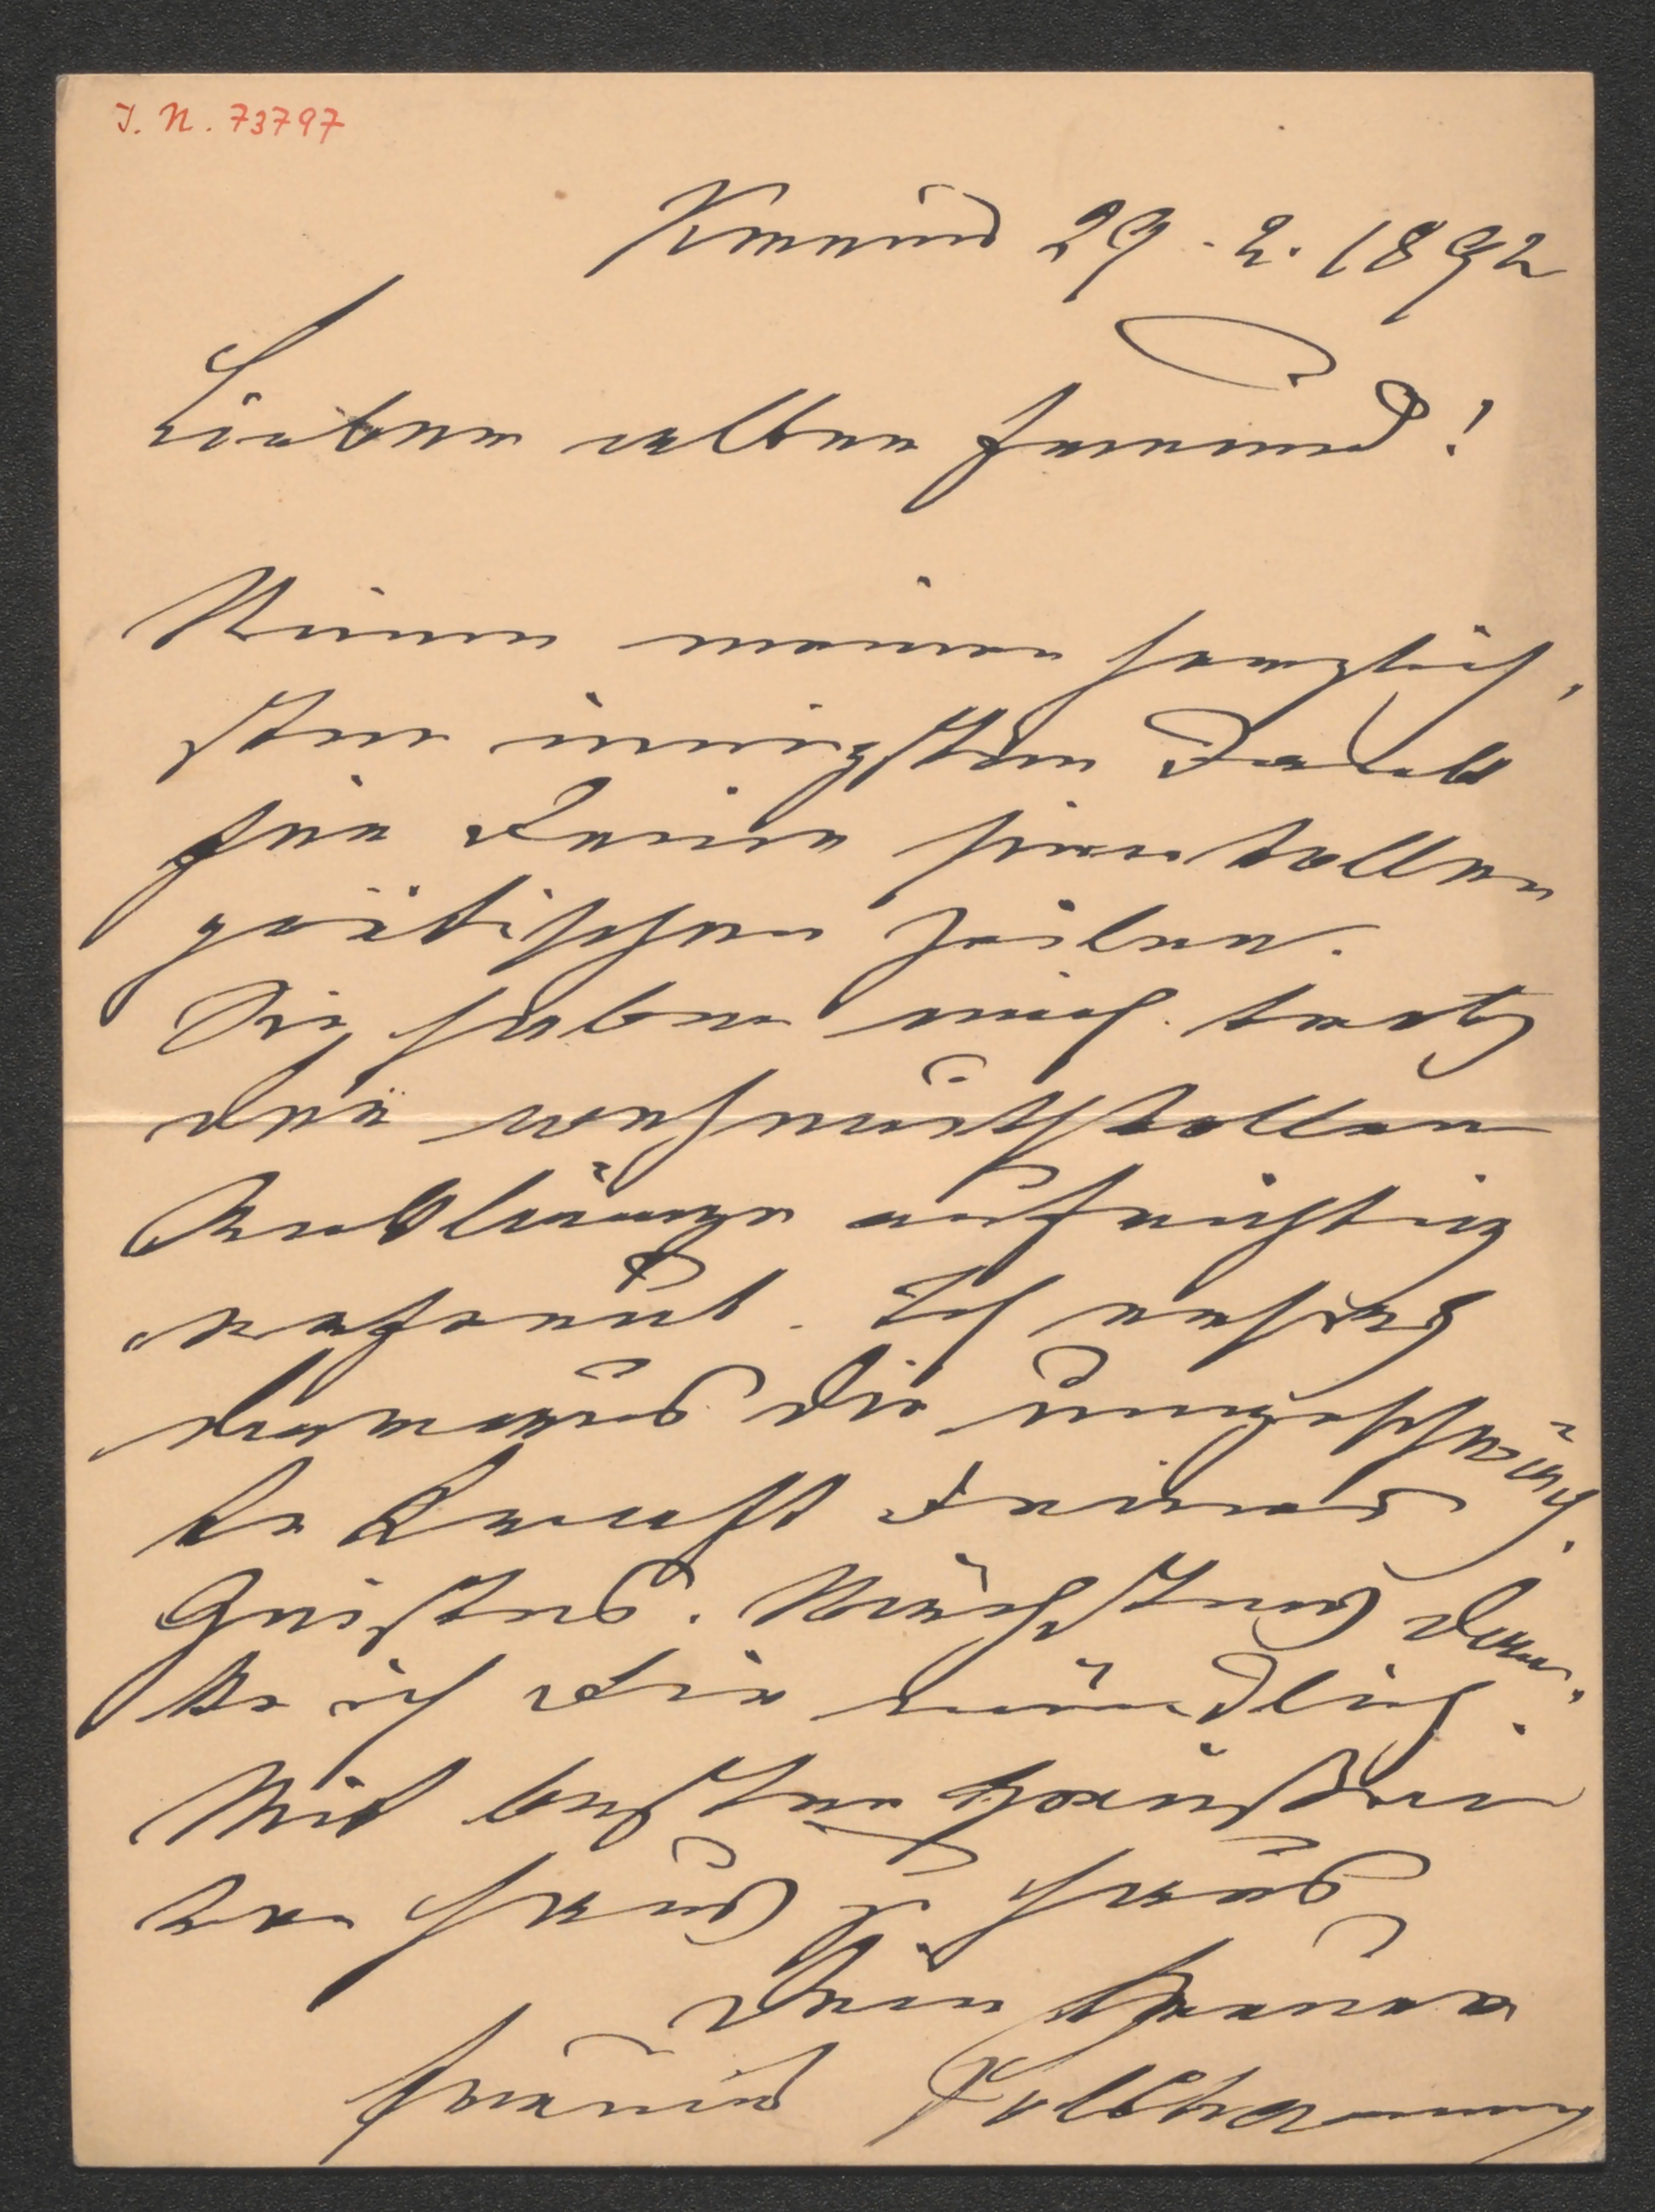 I. N. 73797
Gmund 29. 2. 1892
Lieber alter Freund!
Nimm meinen herzlich,
sten innigsten Dank
für Deine sinnvollen
poetischen Zeilen.
Sie haben mich trotz
der wehmuthsvollen
Anklänge aufrichtig
erfreut. Ich ersehe
daraus die ungeschwäch.
te Kraft Deines
Geistes. Nächstens dan,
ke ich Dir mündlich.
Mit besten Grüßen
von Haus z Haus
Dein treuer
Freund